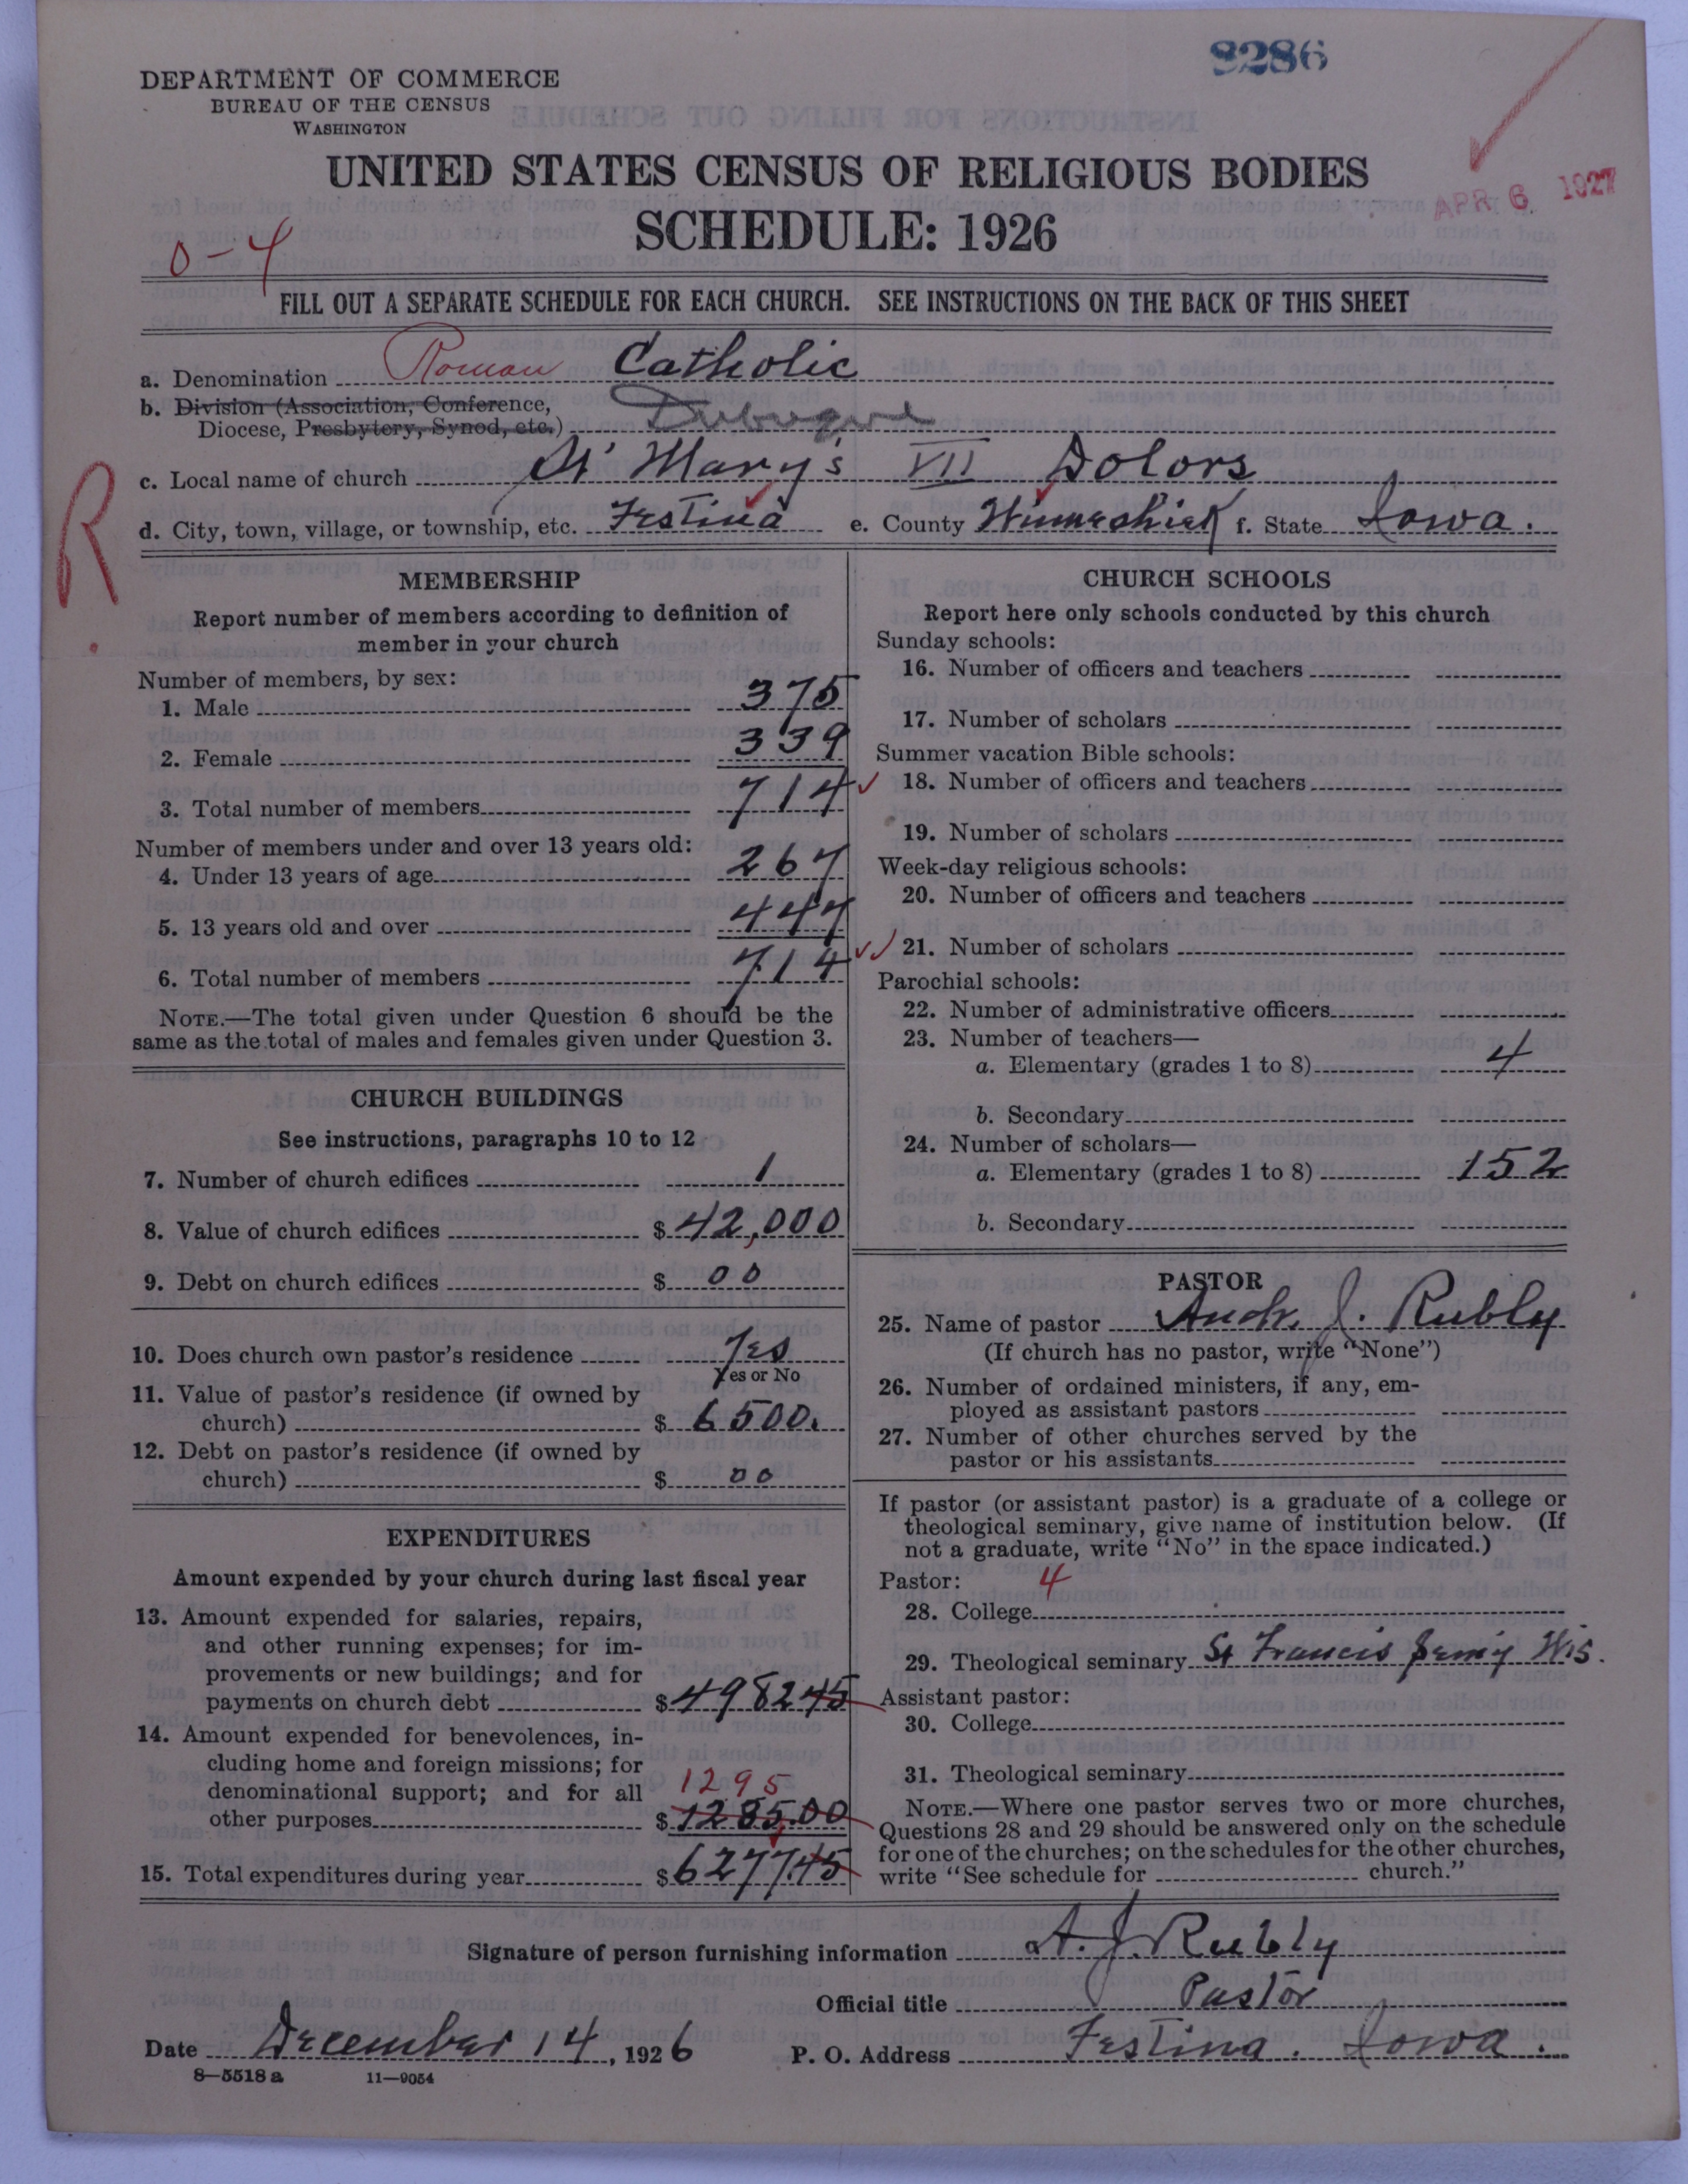 8286
DEPARTMENT OF COMMERCE
BUREAU OF THE CENSUS
WASHINGTON
UNITED STATES CENSUS OF RELIGIOUS BODIES
APR 6 1927
SCHEDULE: 1926
0-4
FILL OUT A SEPARATE SCHEDULE FOR EACH CHURCH. SEE INSTRUCTIONS ON THE BACK OF THIS SHEET
a. Denomination Roman Catholic
b. Division (Association, Conference,
Diocese, Presbytery, Synod, etc.) Dubuque
c. Local name of church St Mary's VII Dolors
d. City, town, village, or township, etc. Festina e. County Winneshiek f. State Iowa.
R.
MEMBERSHIP
Report number of members according to definition of
member in your church
Number of members, by sex:
1. Male 375
2. Female 339
3. Total number of members 714
Number of members under and over 13 years old:
4. Under 13 years of age 267
5. 13 years old and over 447
6. Total number of members 714
NOTE.—The total given under Question 6 should be the
same as the total of males and females given under Question 3.
CHURCH BUILDINGS
See instructions, paragraphs 10 to 12
7. Number of church edifices 1
8. Value of church edifices $ 42,000
9. Debt on church edifices $ 00
10. Does church own pastor's residence Yes
Yes or No
11. Value of pastor's residence (if owned by
church) $ 6500.
12. Debt on pastor's residence (if owned by
church) $ 00
EXPENDITURES
Amount expended by your church during last fiscal year
13. Amount expended for salaries, repairs,
and other running expenses; for im-
provements or new buildings; and for
payments on church debt $ 498245
14. Amount expended for benevolences, in-
cluding home and foreign missions; for
denominational support; and for all 1295
other purposes $ 1285.00
15. Total expenditures during year $ 6277.45
CHURCH SCHOOLS
Report here only schools conducted by this church
Sunday schools:
16. Number of officers and teachers
17. Number of scholars
Summer vacation Bible schools:
18. Number of officers and teachers
19. Number of scholars
Week-day religious schools:
20. Number of officers and teachers
21. Number of scholars
Parochial schools:
22. Number of administrative officers
23. Number of teachers—
a. Elementary (grades 1 to 8) 4
b. Secondary
24. Number of scholars—
a. Elementary (grades 1 to 8) 152
b. Secondary
PASTOR
25. Name of pastor Andr. J. Rubly
(If church has no pastor, write "None")
26. Number of ordained ministers, if any, em-
ployed as assistant pastors
27. Number of other churches served by the
pastor or his assistants
If pastor (or assistant pastor) is a graduate of a college or
theological seminary, give name of institution below. (If
not a graduate, write "No" in the space indicated.)
Pastor: 4
28. College
29. Theological seminary St Francis Wis.
Assistant pastor:
30. College
31. Theological seminary
NOTE.—Where one pastor serves two or more churches,
Questions 28 and 29 should be answered only on the schedule
for one of the churches; on the schedules for the other churches,
write "See schedule for church."
Signature of person furnishing information A. J. Rubly
Official title Pastor
Date December 14, 1926 P. O. Address Festina. Iowa.
8—5518 a 11—9054